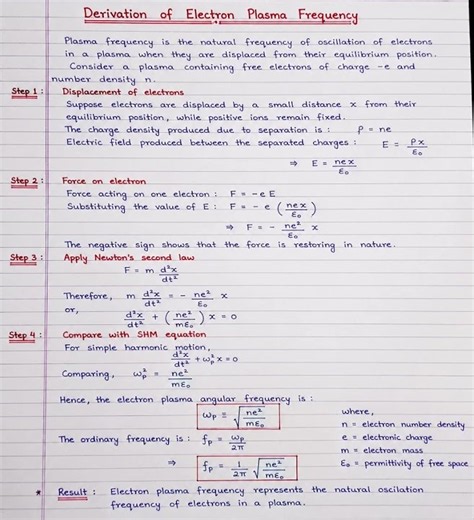 Derivation of Electron Plasma Frequency
Plasma frequency is the natural frequency of oscillation of electrons
in a plasma when they are displaced from their equilibrium position.
Consider a plasma containing free electrons of charge -e and
number density n.
Step 1 : Displacement of electrons
Suppose electrons are displaced by a small distance x from their
equilibrium position, while positive ions remain fixed.
The charge density produced due to separation is : ρ = ne
Electric field produced between the separated charges : E = ρx/ε₀
⇒ E = nex/ε₀
Step 2 : Force on electron
Force acting on one electron : F = -e E
Substituting the value of E : F = - e (nex/ε₀)
⇒ F = - ne²/ε₀ x
The negative sign shows that the force is restoring in nature.
Step 3 : Apply Newton's second law
F = m d²x/dt²
Therefore, m d²x/dt² = - ne²/ε₀ x
or, d²x/dt² + (ne²/mε₀) x = 0
Step 4 : Compare with SHM equation
For simple harmonic motion,
d²x/dt² + ωₚ²x = 0
Comparing, ωₚ² = ne²/mε₀
Hence, the electron plasma angular frequency is :
ωₚ = √(ne²/mε₀)
where,
n = electron number density
e = electronic charge
m = electron mass
ε₀ = permittivity of free space
The ordinary frequency is : fₚ = ωₚ/2π
⇒ fₚ = 1/2π √(ne²/mε₀)
* Result : Electron plasma frequency represents the natural oscilation
frequency of electrons in a plasma.